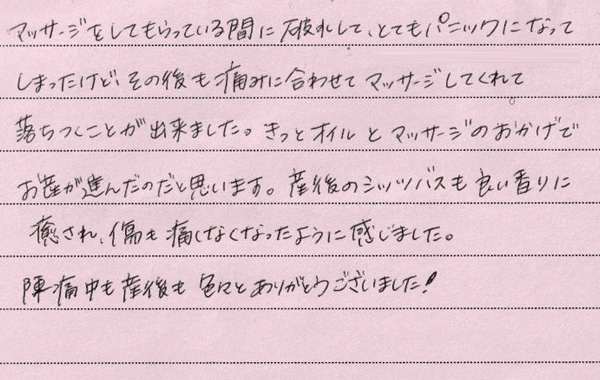 マッサージをしてもらっている間に破水して、とてもパニックになって
しまったけど、その後も痛みに合わせてマッサージしてくれて
落ちつくことが出来ました。きっとオイルとマッサージのおかげで
お産が進んだのだと思います。産後のシッツバスも良い香りに
癒され、傷も痛くなくなったように感じました。
陣痛中も産後も色々とありがとうございました!